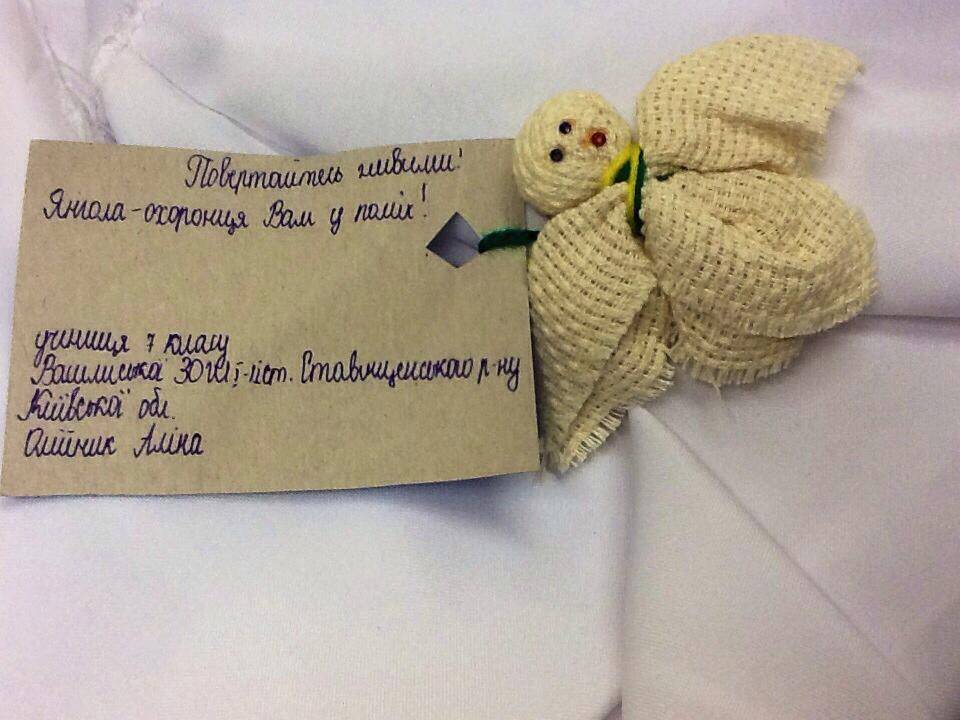 Повертайтесь живими!
Янгола-охоронця Вам у поміч!
учениця 7 класу
ЗОШ І-ІІІ ст. Ставищенського р-ну
Київської обл.
Олійник Аліна